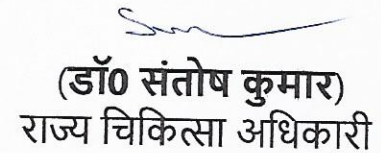 (डॉ0 संतोष कुमार)
राज्य चिकित्सा अधिकारी